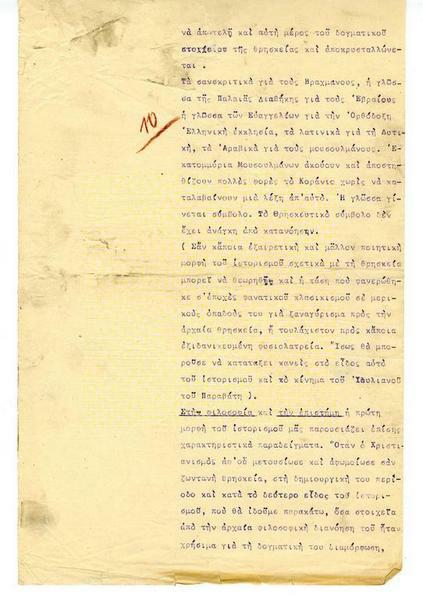 νὰ ἀποτελῇ καὶ αὐτὴ μέρος τοῦ δογματικοῦ
στοιχείου τῆς θρησκείας καὶ ἀποκρυσταλλώνε-
ται .
Τὰ σανσκριτικὰ γιὰ τοὺς Βραχμάνους, ἡ γλῶσ-
σα τῆς Παλαιᾶς Διαθήκης γιὰ τοὺς Ἑβραίους
ἡ γλῶσσα τῶν Εὐαγγελίων γιὰ τὴν Ὀρθόδοξη
Ἑλληνικὴ ἐκκλησία, τὰ λατινικὰ γιὰ τὴ Δυτι-
κή, τὰ Ἀραβικὰ γιὰ τοὺς μουσουλμάνους. Ἑ-
κατομμύρια Μουσουλμάνων ἀκούουν καὶ ἀποστη-
θίζουν πολλὲς φορὲς τὸ Κοράνιο χωρὶς νὰ κα-
ταλαβαίνουν μιὰ λέξη ἀπ'αὐτό. Ἡ γλῶσσα γί-
νεται σύμβολο. Τὸ θρησκευτικὸ σύμβολο δὲν
ἔχει ἀνάγκη ἀπὸ κατανόησην.
( Σὰν κάποια ἐξαιρετικὴ καὶ μᾶλλον ποιητικὴ
μορφὴ τοῦ ἱστορισμοῦ σχετικὰ μὲ τὴ θρησκεία
μπορεῖ νὰ θεωρηθῇ καὶ ἡ τάση ποὺ φανερώθη-
κε σ'ἐποχὲς φανατικοῦ κλασικισμοῦ σὲ μερι-
κοὺς ὀπαδούς του γιὰ ξαναγύρισμα πρὸς τὴν
ἀρχαία θρησκεία, ἢ τουλάχιστον πρὸς κάποια
ἐξιδανικευμένη φυσιολατρεία. Ἴσως θὰ μπο-
ροῦσε νὰ κατατάξει κανεὶς στὸ εἶδος αὐτὸ
τοῦ ἱστορισμοῦ καὶ τὸ κίνημα τοῦ Ἰουλιανοῦ
τοῦ Παραβάτη ).
Στὴν φιλοσοφία καὶ τὴν ἐπιστήμη ἡ πρώτη
μορφὴ τοῦ ἱστορισμοῦ μᾶς παρουσιάζει ἐπίσης
χαρακτηριστικὰ παραδείγματα. Ὅταν ὁ Χριστι-
ανισμὸς ἀφ'οὗ μετουσίωσε καὶ ἀφωμοίωσε σὰν
ζωντανὴ θρησκεία, στὴ δημιουργική του περί-
οδο καὶ κατὰ τὸ δεύτερο εἶδος τοῦ ἱστορισ-
μοῦ, ποὺ θὰ ἰδοῦμε παρακάτω, ὅσα στοιχεῖα
ἀπὸ τὴν ἀρχαία φιλοσοφικὴ διανόηση τοῦ ἦταν
χρήσιμα γιὰ τὴ δογματική του διαμόρφωση,
10